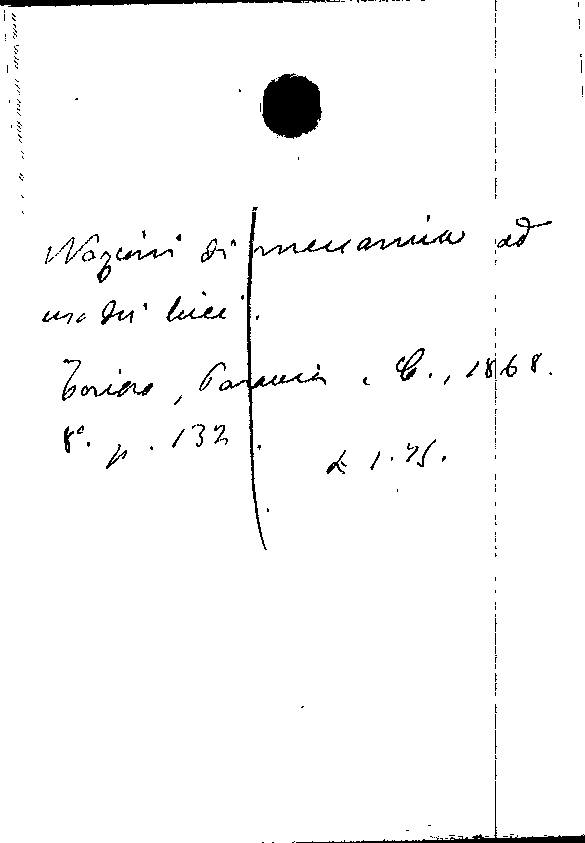 Nozioni di meccanica ad
uso dei licei.
Torino, Paravia e C., 1868.
8°. p. 132.
L 1.75.